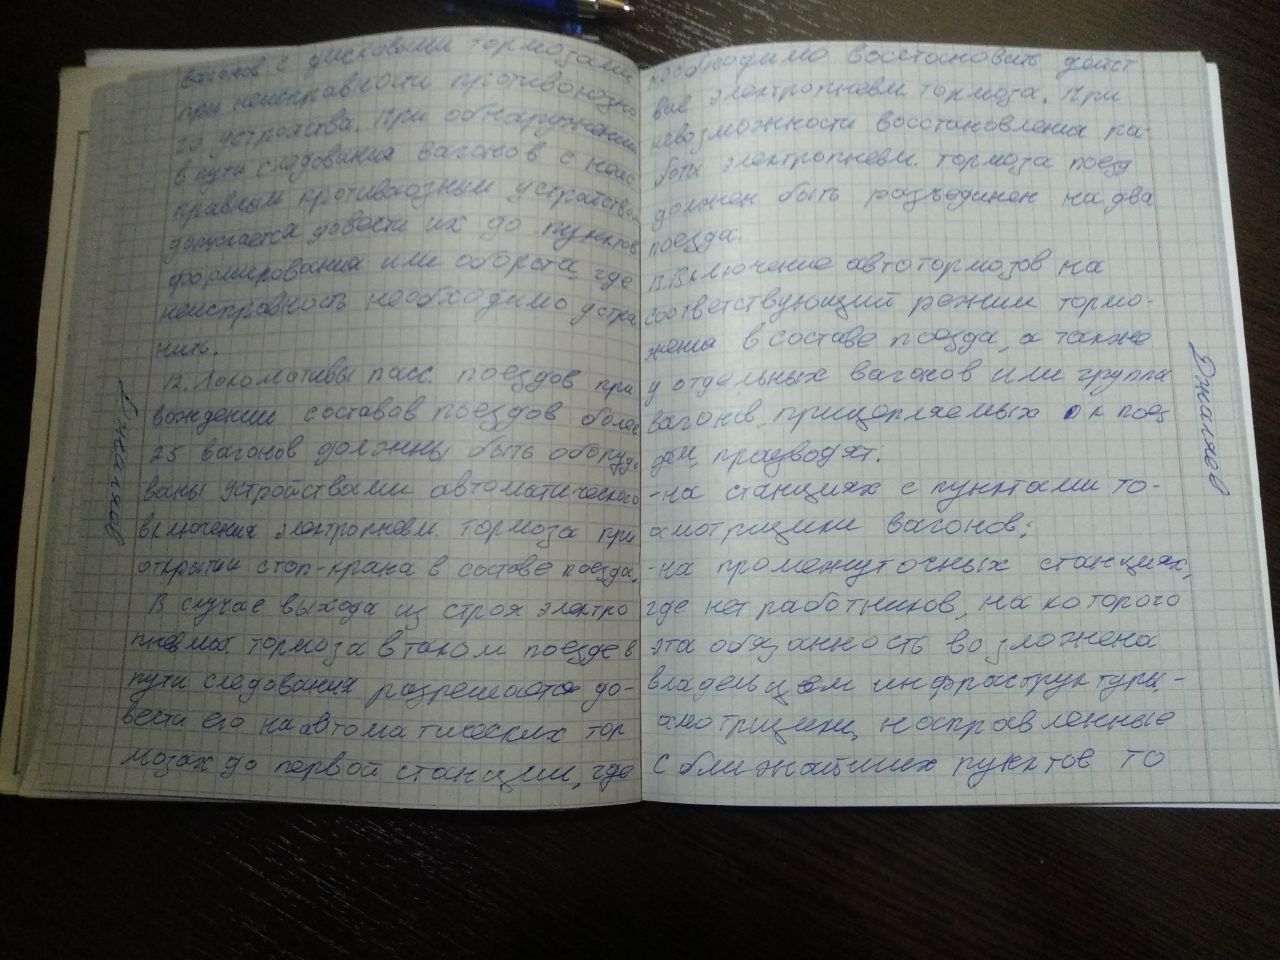 вагонов с дисковыми тормозами
при неисправности противоюзно
го устройства. При обнаружении
в пути следования вагонов с неис
правным противоюзным устройством
допускается довести их до пунктов
формирования или оборота, где
неисправность необходимо устра
нить.
12. Локомативы пасс. поездов при
вождении составов поездов более
25 вагонов должны быть оборудо
ваны устройствами автоматического
включения электропневм. тормоза при
открытии стоп-крана в составе поезда.
В случае выхода из строя электро
пневмат. тормоза в таком поезде в
пути следования разрешается до-
вести его на автоматических тор
мозах до первой станции, где
необходимо восстановить дейст
вие электропневм. тормоза. При
невозможности восстановления ра-
боты электропневм. тормоза поезд
должен быть разъединен на два
поезда.
13. Включение автотормозов на
соответствующий режим тормо-
жения в составе поезда, а также
у отдельных вагонов или группы
вагонов, прицепляемых к поез
дам, празводят:
-на станциях с пунктами то-
осмотрщики вагонов;
-на промежуточных станциях,
где нет работников, на которого
эта обязанность возложена
владельцем инфраструктуры,-
осмотрщики, направленные
с ближайших пунктов ТО